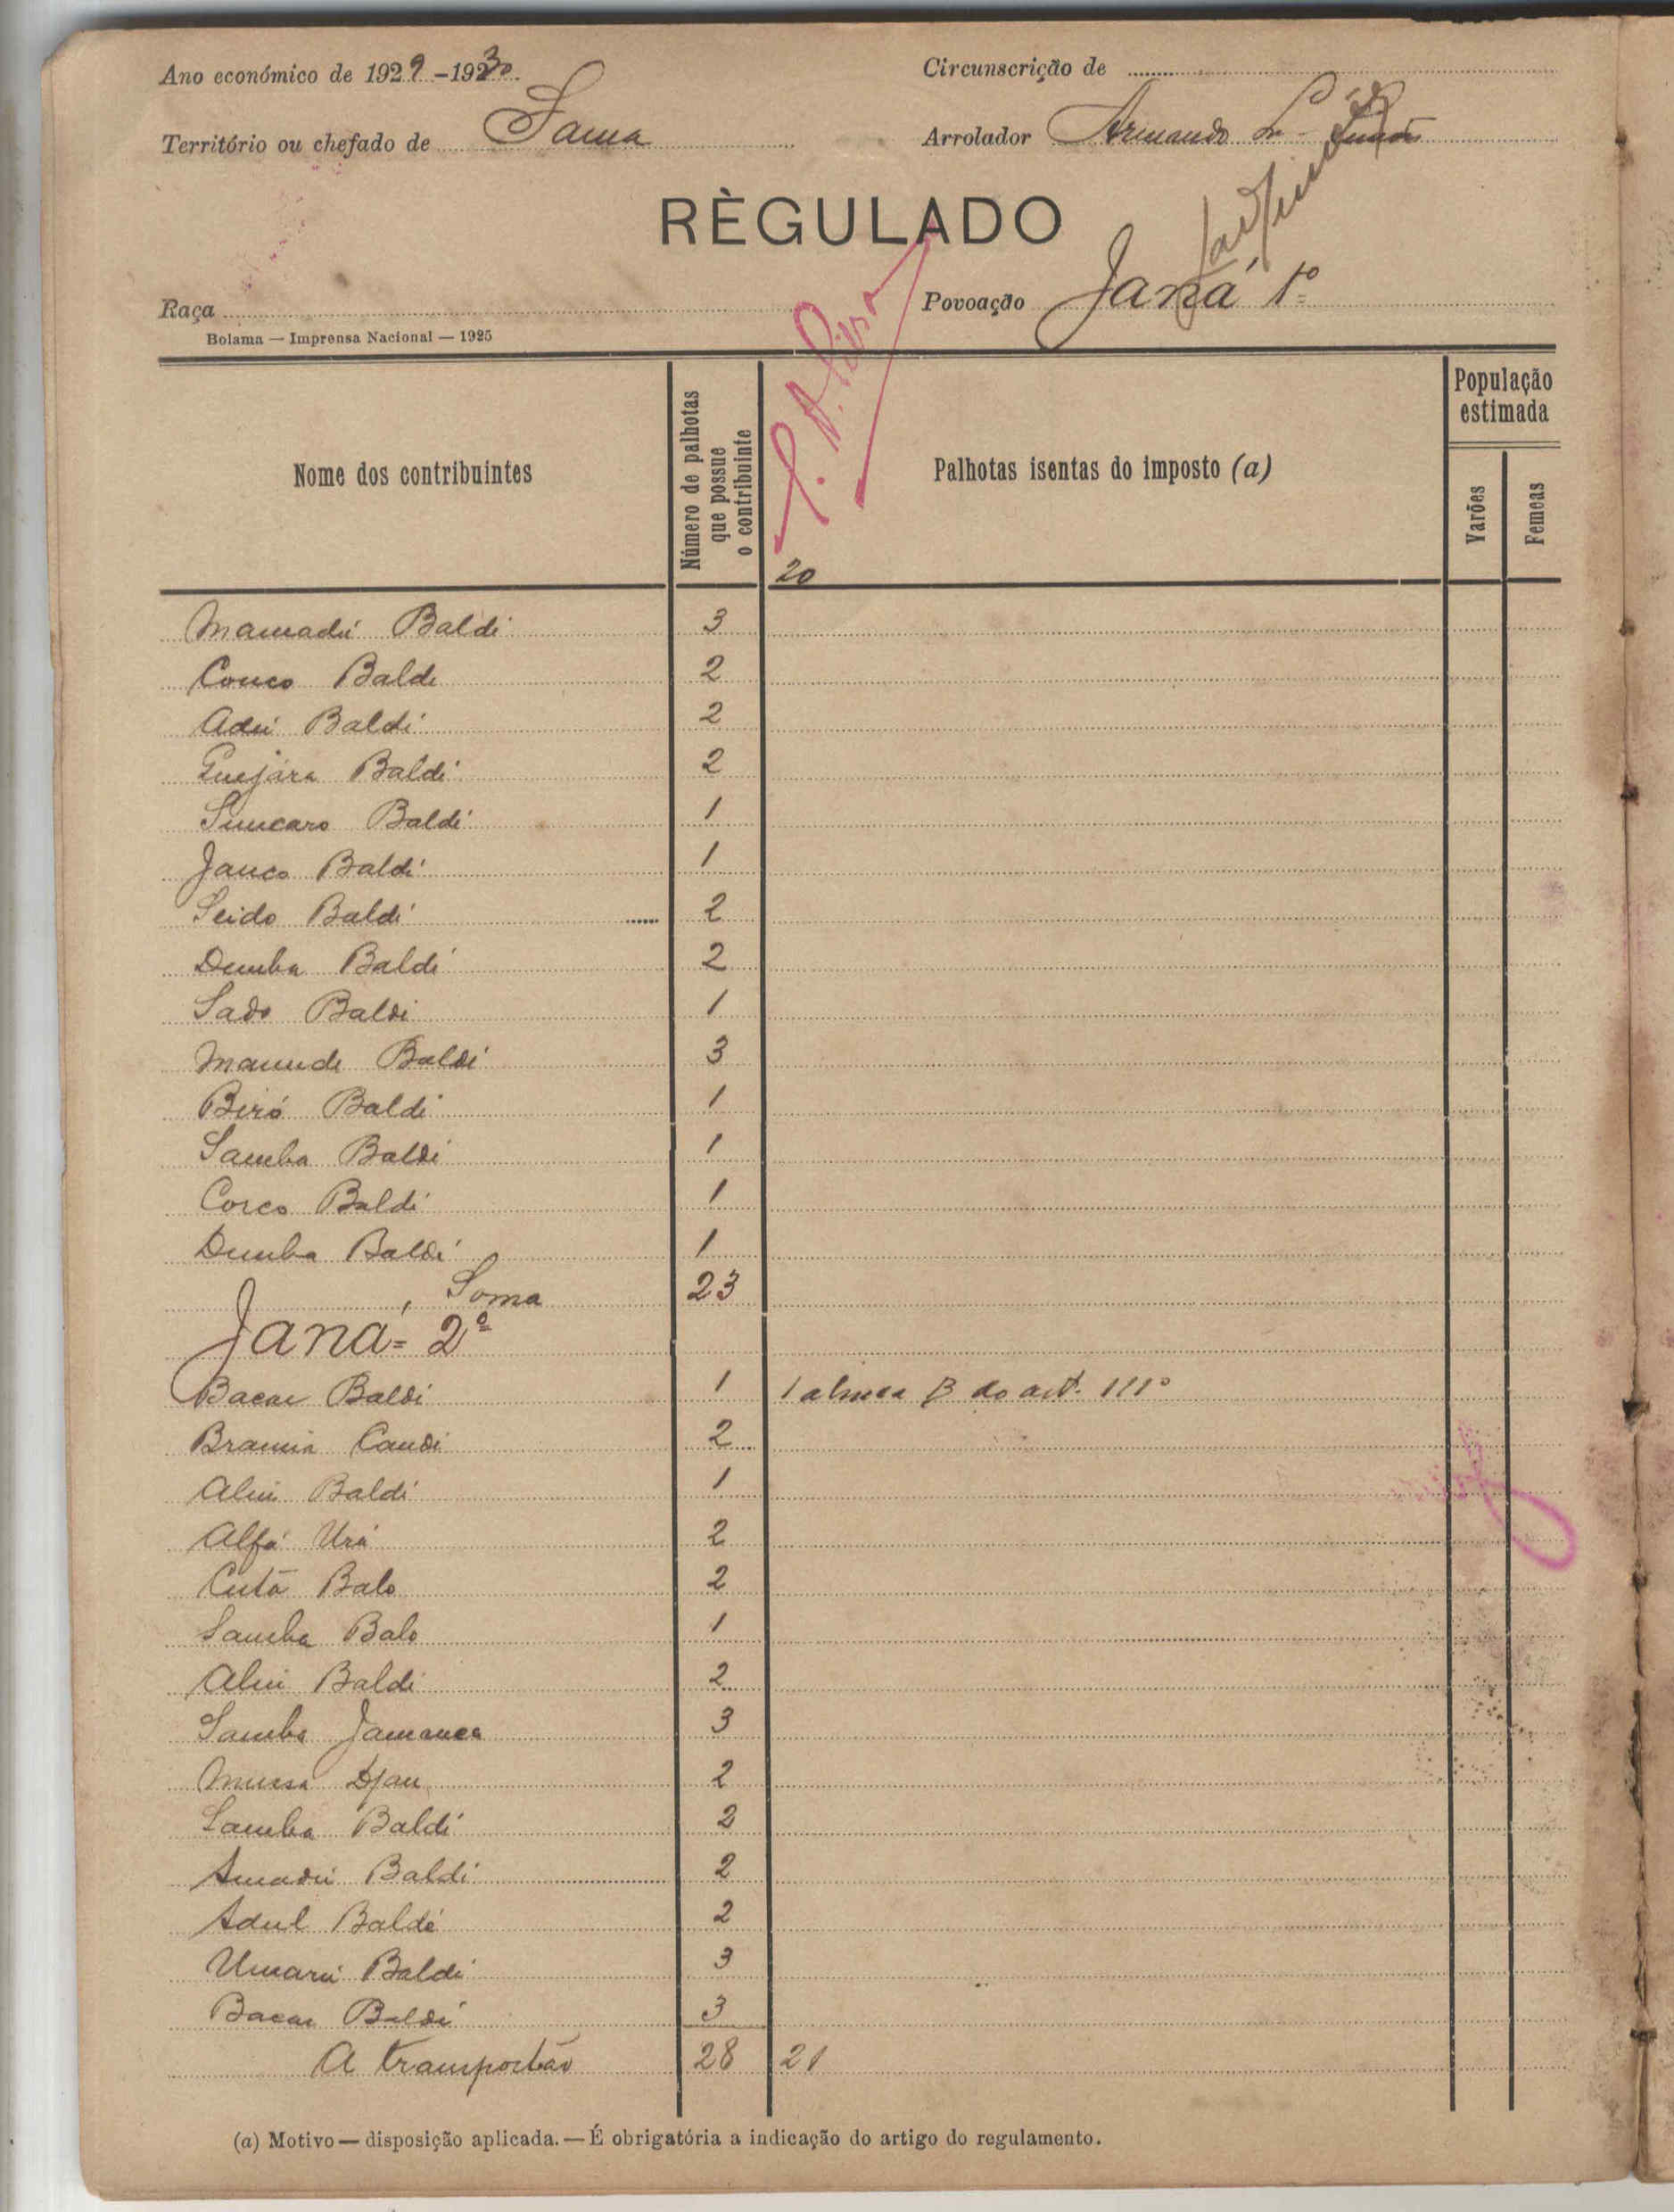 Ano económico de 1929 -1930
Circunscrição de
Território ou chefado de Sama
Arrolador Armando
RÈGULADO
Raça
Povoação Janá 1º
Bolama — Imprensa Nacional — 1925
Nome dos contribuintes
Número de palhotas que possue o contribuinte
Palhotas isentas do imposto (a)
População estimada
Varões
Femeas
20
Mamadú Baldé 3
Couco Balde 2
Adú Baldé 2
Guejára Baldé 2
Baldé 1
Jauco Baldé 1
Seido Baldé 2
Demba Baldé 2
Sado Baldé 1
Baldé 3
Biró Baldé 1
Samba Baldé 1
Corco Baldé 1
Demba Baldé 1
Soma 23
Janá= 2º
Bacar Baldé 1 1 alinea B do art. 111º
Braima Candé 2
Aliu Baldé 1
Alfá Urá 2
Cutá Balo 2
Samba Balo 1
Aliu Baldé 2
Samba Jamanca 3
Mussa Djau 2
Samba Baldé 2
Amadú Baldé 2
Adul Baldé 2
Umarú Baldé 3
Bacar Baldé 3
A 28 21
(a) Motivo — disposição aplicada. — É obrigatória a indicação do artigo do regulamento.